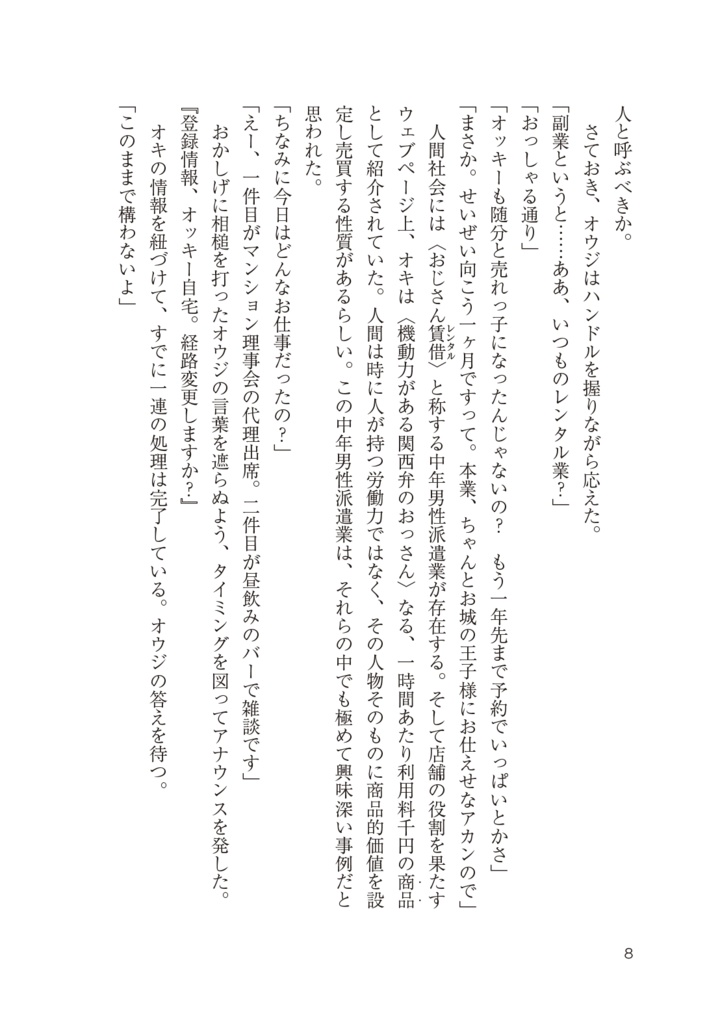 人と呼ぶべきか。
　さておき、オウジはハンドルを握りながら応えた。
「副業というと……ああ、いつものレンタル業？」
「おっしゃる通り」
「オッキーも随分と売れっ子になったんじゃないの？　もう一年先まで予約でいっぱいとかさ」
「まさか。せいぜい向こう一ヶ月ですって。本業、ちゃんとお城の王子様にお仕えせなアカンので」
　人間社会には〈おじさん賃借レンタル〉と称する中年男性派遣業が存在する。そして店舗の役割を果たす
ウェブページ上、オキは〈機動力がある関西弁のおっさん〉なる、一時間あたり利用料千円の商品
として紹介されていた。人間は時に人が持つ労働力ではなく、その人物そのものに商品的価値を設
定し売買する性質があるらしい。この中年男性派遣業は、それらの中でも極めて興味深い事例だと
思われた。
「ちなみに今日はどんなお仕事だったの？」
「えー、一件目がマンション理事会の代理出席。二件目が昼飲みのバーで雑談です」
　おかしげに相槌を打ったオウジの言葉を遮らぬよう、タイミングを図ってアナウンスを発した。
『登録情報、オッキー自宅。経路変更しますか？』
　オキの情報を紐づけて、すでに一連の処理は完了している。オウジの答えを待つ。
「このままで構わないよ」
8